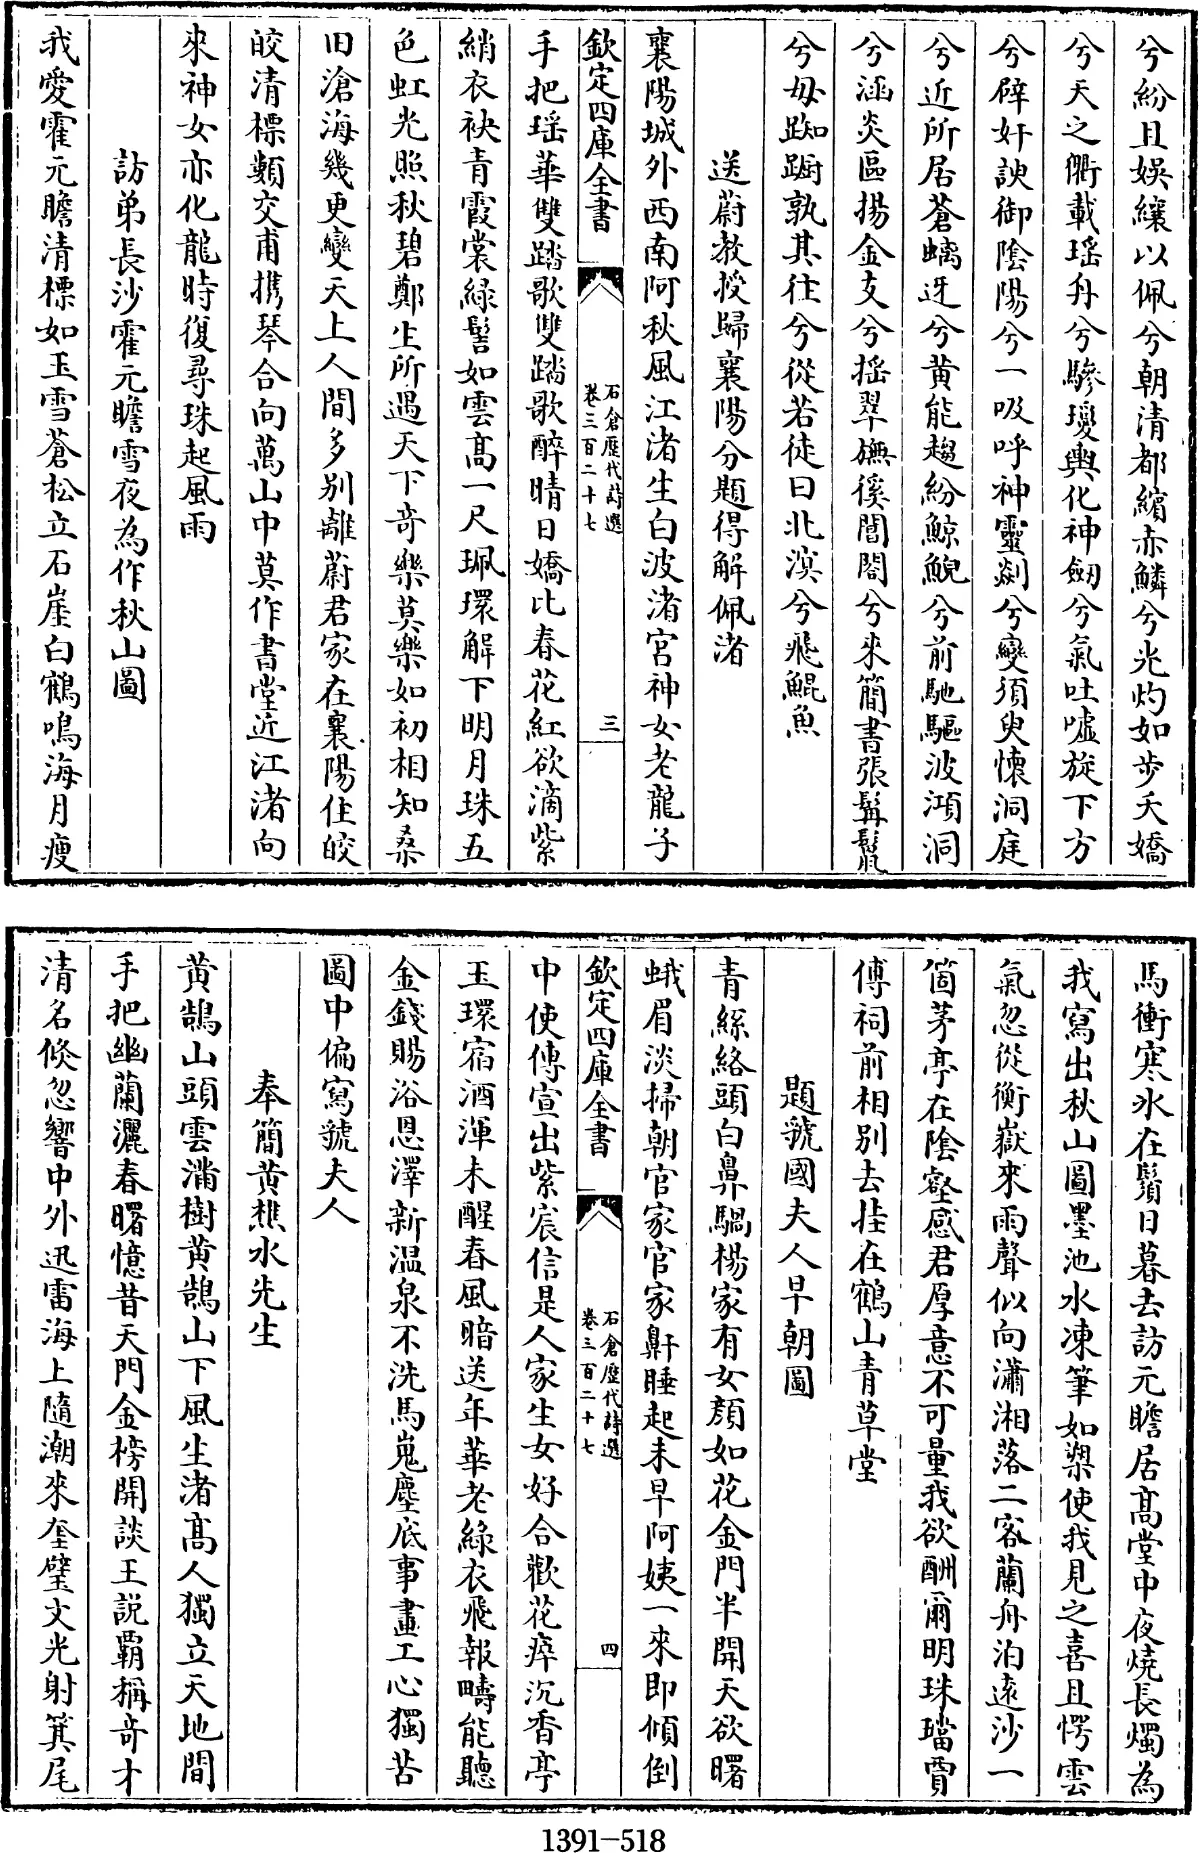 兮紛且娛纕以佩兮朝清都繽赤鱗兮光灼如步夭嬌
兮天之衢載瑶舟兮驂瓊輿化神劒兮氣吐噓旋下方
兮辟奸諛御陰陽兮一吸呼神靈剡兮變須臾懷洞庭
兮近所居蒼螭迓兮黄能趨紛鯨鯢兮前馳驅波澒洞
兮涵炎區揚金支兮摇翠橆徯閶闔兮來簡書張髯鬛
兮毋踟蹰孰其往兮從若徒曰北溟兮飛鯤魚
送蔚教授歸襄陽分題得解佩渚
襄陽城外西南阿秋風江渚生白波渚宮神女老龍子
欽定四庫全書
石倉歷代詩選
卷三百二十七
三
手把瑶華雙踏歌雙踏歌醉晴日嬌比春花紅欲滴紫
綃衣袂青霞裳綠髻如雲高一尺珮環解下明月珠五
色虹光照秋碧鄭生所遇天下奇樂莫樂如初相知桑
旧滄海幾更變天上人間多别離蔚君家在襄陽住皎
皎清標類交甫携琴合向萬山中莫作書堂近江渚向
來神女亦化龍時復尋珠起風雨
訪弟長沙霍元瞻雪夜為作秋山圖
我愛霍元瞻清標如玉雪蒼松立石崖白鶴鳴海月瘦
馬衝寒氷在鬚日暮去訪元瞻居高堂中夜燒長燭為
我寫出秋山圖墨池水凍筆如槊使我見之喜且愕雲
氣忽從衡嶽來雨聲似向瀟湘落二客蘭舟泊逺沙一
箇茅亭在陰壑感君厚意不可量我欲酬爾明珠璫賈
傅祠前相别去挂在鶴山青草堂
題虢國夫人早朝圖
青絲絡頭白鼻騧楊家有女顔如花金門半開天欲曙
蛾眉淡掃朝官家官家鼾睡起未早阿姨一來即傾倒
欽定四庫全書
石倉歷代詩選
卷三百二十七
四
中使傳宣出紫宸信是人家生女好合歡花瘁沉香亭
玉環宿酒渾未醒春風暗送年華老綠衣飛報疇能聽
金錢賜浴恩澤新温泉不洗馬嵬塵底事畫工心獨苦
圖中偏寫虢夫人
奉簡黄樵水先生
黄鵠山頭雲滿樹黄鵠山下風生渚高人獨立天地間
手把幽蘭灑春曙憶昔天門金榜開談王説覇稱竒才
清名倐忽響中外迅雷海上隨潮來奎璧文光射箕尾
1391-518